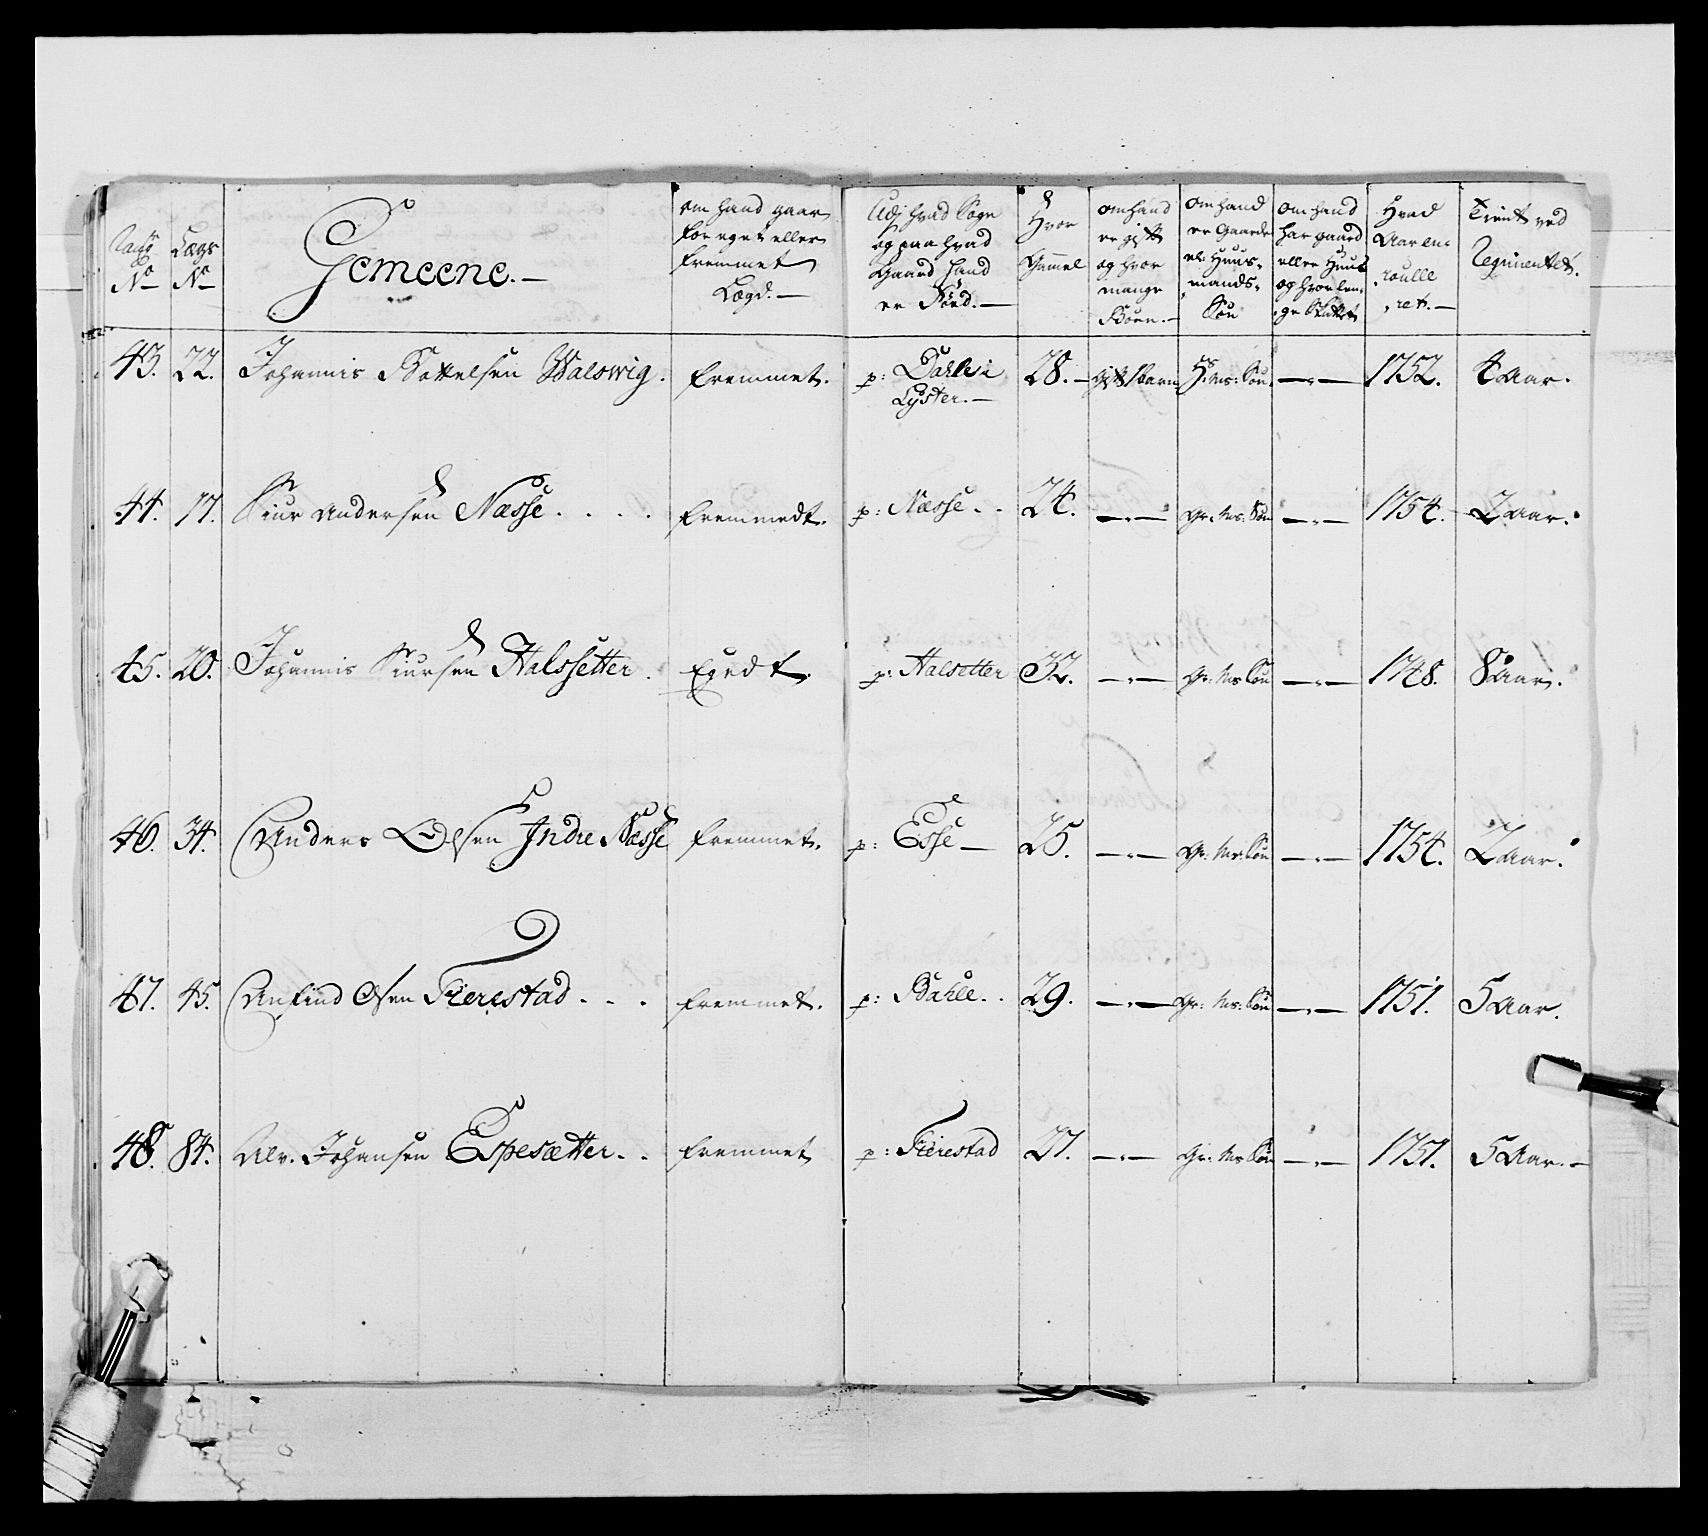 No
Lægs No
Gemeene.—
om hand gaar for eget eller fremmet Lægd.—
Udj hvad Sogn og paa hvad Gaard hand er Fød.—
Hvor Gammel
om hand er gift og hvor mange Børn.—
om hand er Gaards el: Huus-mands-Søn
om hand har gaard eller Huus og hvor lenge
Hvad Aar enroulleret.—
Tient ved Regimentet.
43. 22. Johannis Bottelsen Walswig. fremmet. p: Dahle i Lyster.— 28.— gift 1 barn H: Ms: Søn —"— 1752. 4 Aar.
44. 17. Siur Andersen Næsse. . . . fremmedt. p: Næsse. . 24. —"— Gr: Ms: Søn —"— 1754. 2 Aar.
45. 20. Johannis Siursen Halssetter. Egedt. p: Halsetter 32. —"— Gr: Ms Søn —"— 1748. 8 Aar.
46. 34. Anders Olsen Indre Næsse fremmet. p: Esse— 25. —"— Gr: Ms: Søn —"— 1754. 2 Aar.
47. 45. Anfind Olsen Fierestad. . . fremmet. p: Bahle. . 29. —"— Gr: Ms: Søn —"— 1751. 5 Aar.
48. 84. Johansen Espesætter. . fremmet p: Fierestad 27. —"— Gr: Ms Søn —"— 1751. 5 Aar.—